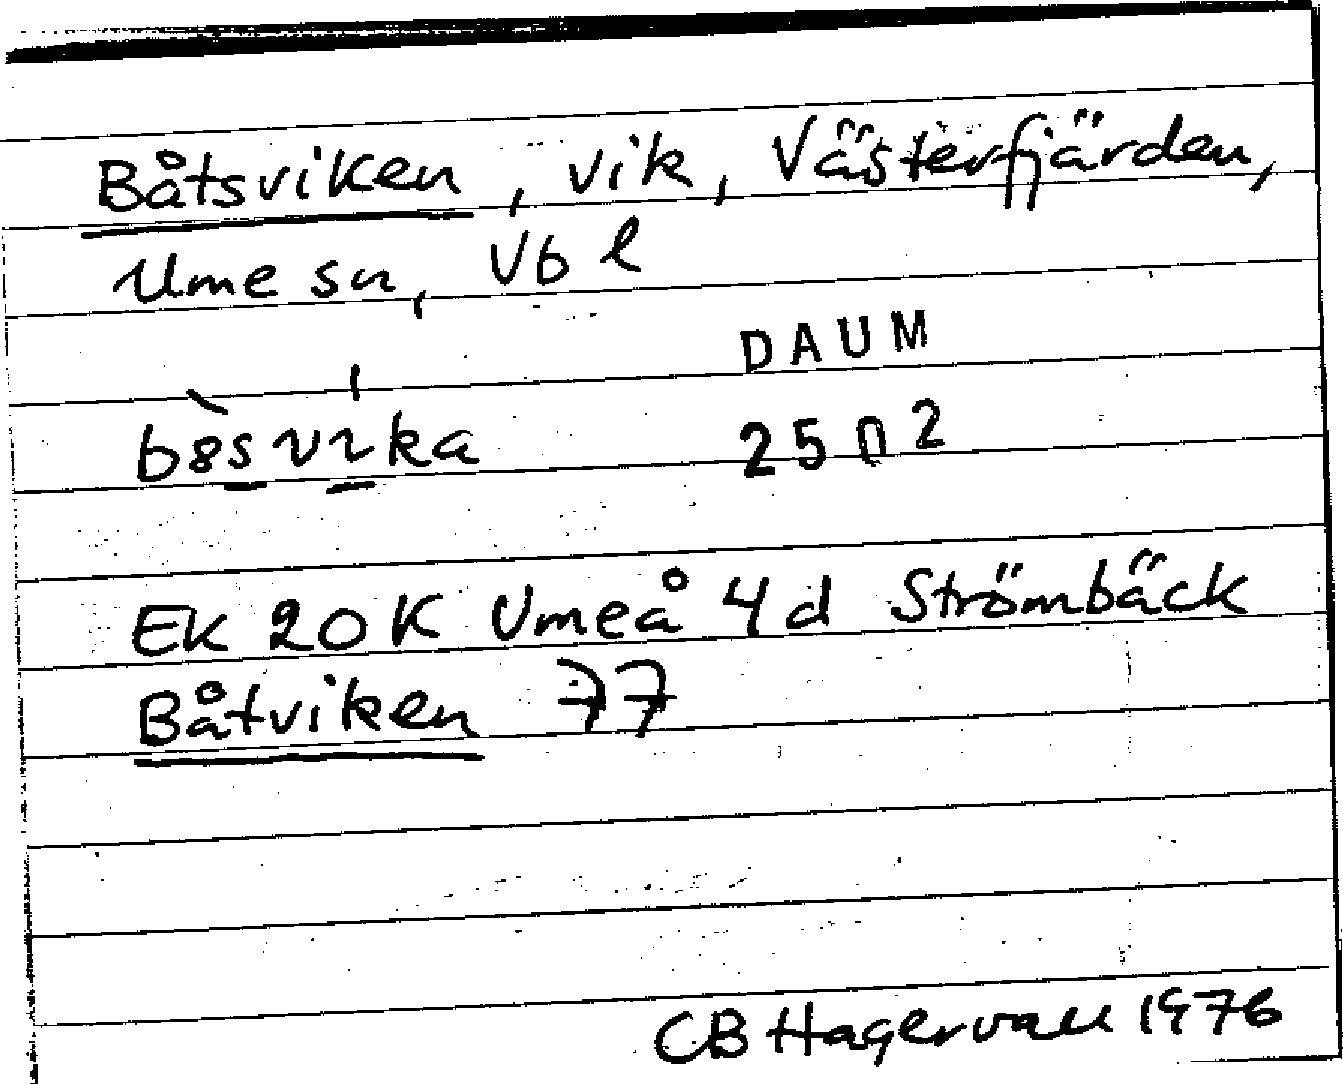 Båtsviken, vik, Västerfjärden,
Ume sn, Vb l
DAUM
2502
EK 20K Umeå 4d Strömbäck
Båtviken 77
CB Hagervall 1976